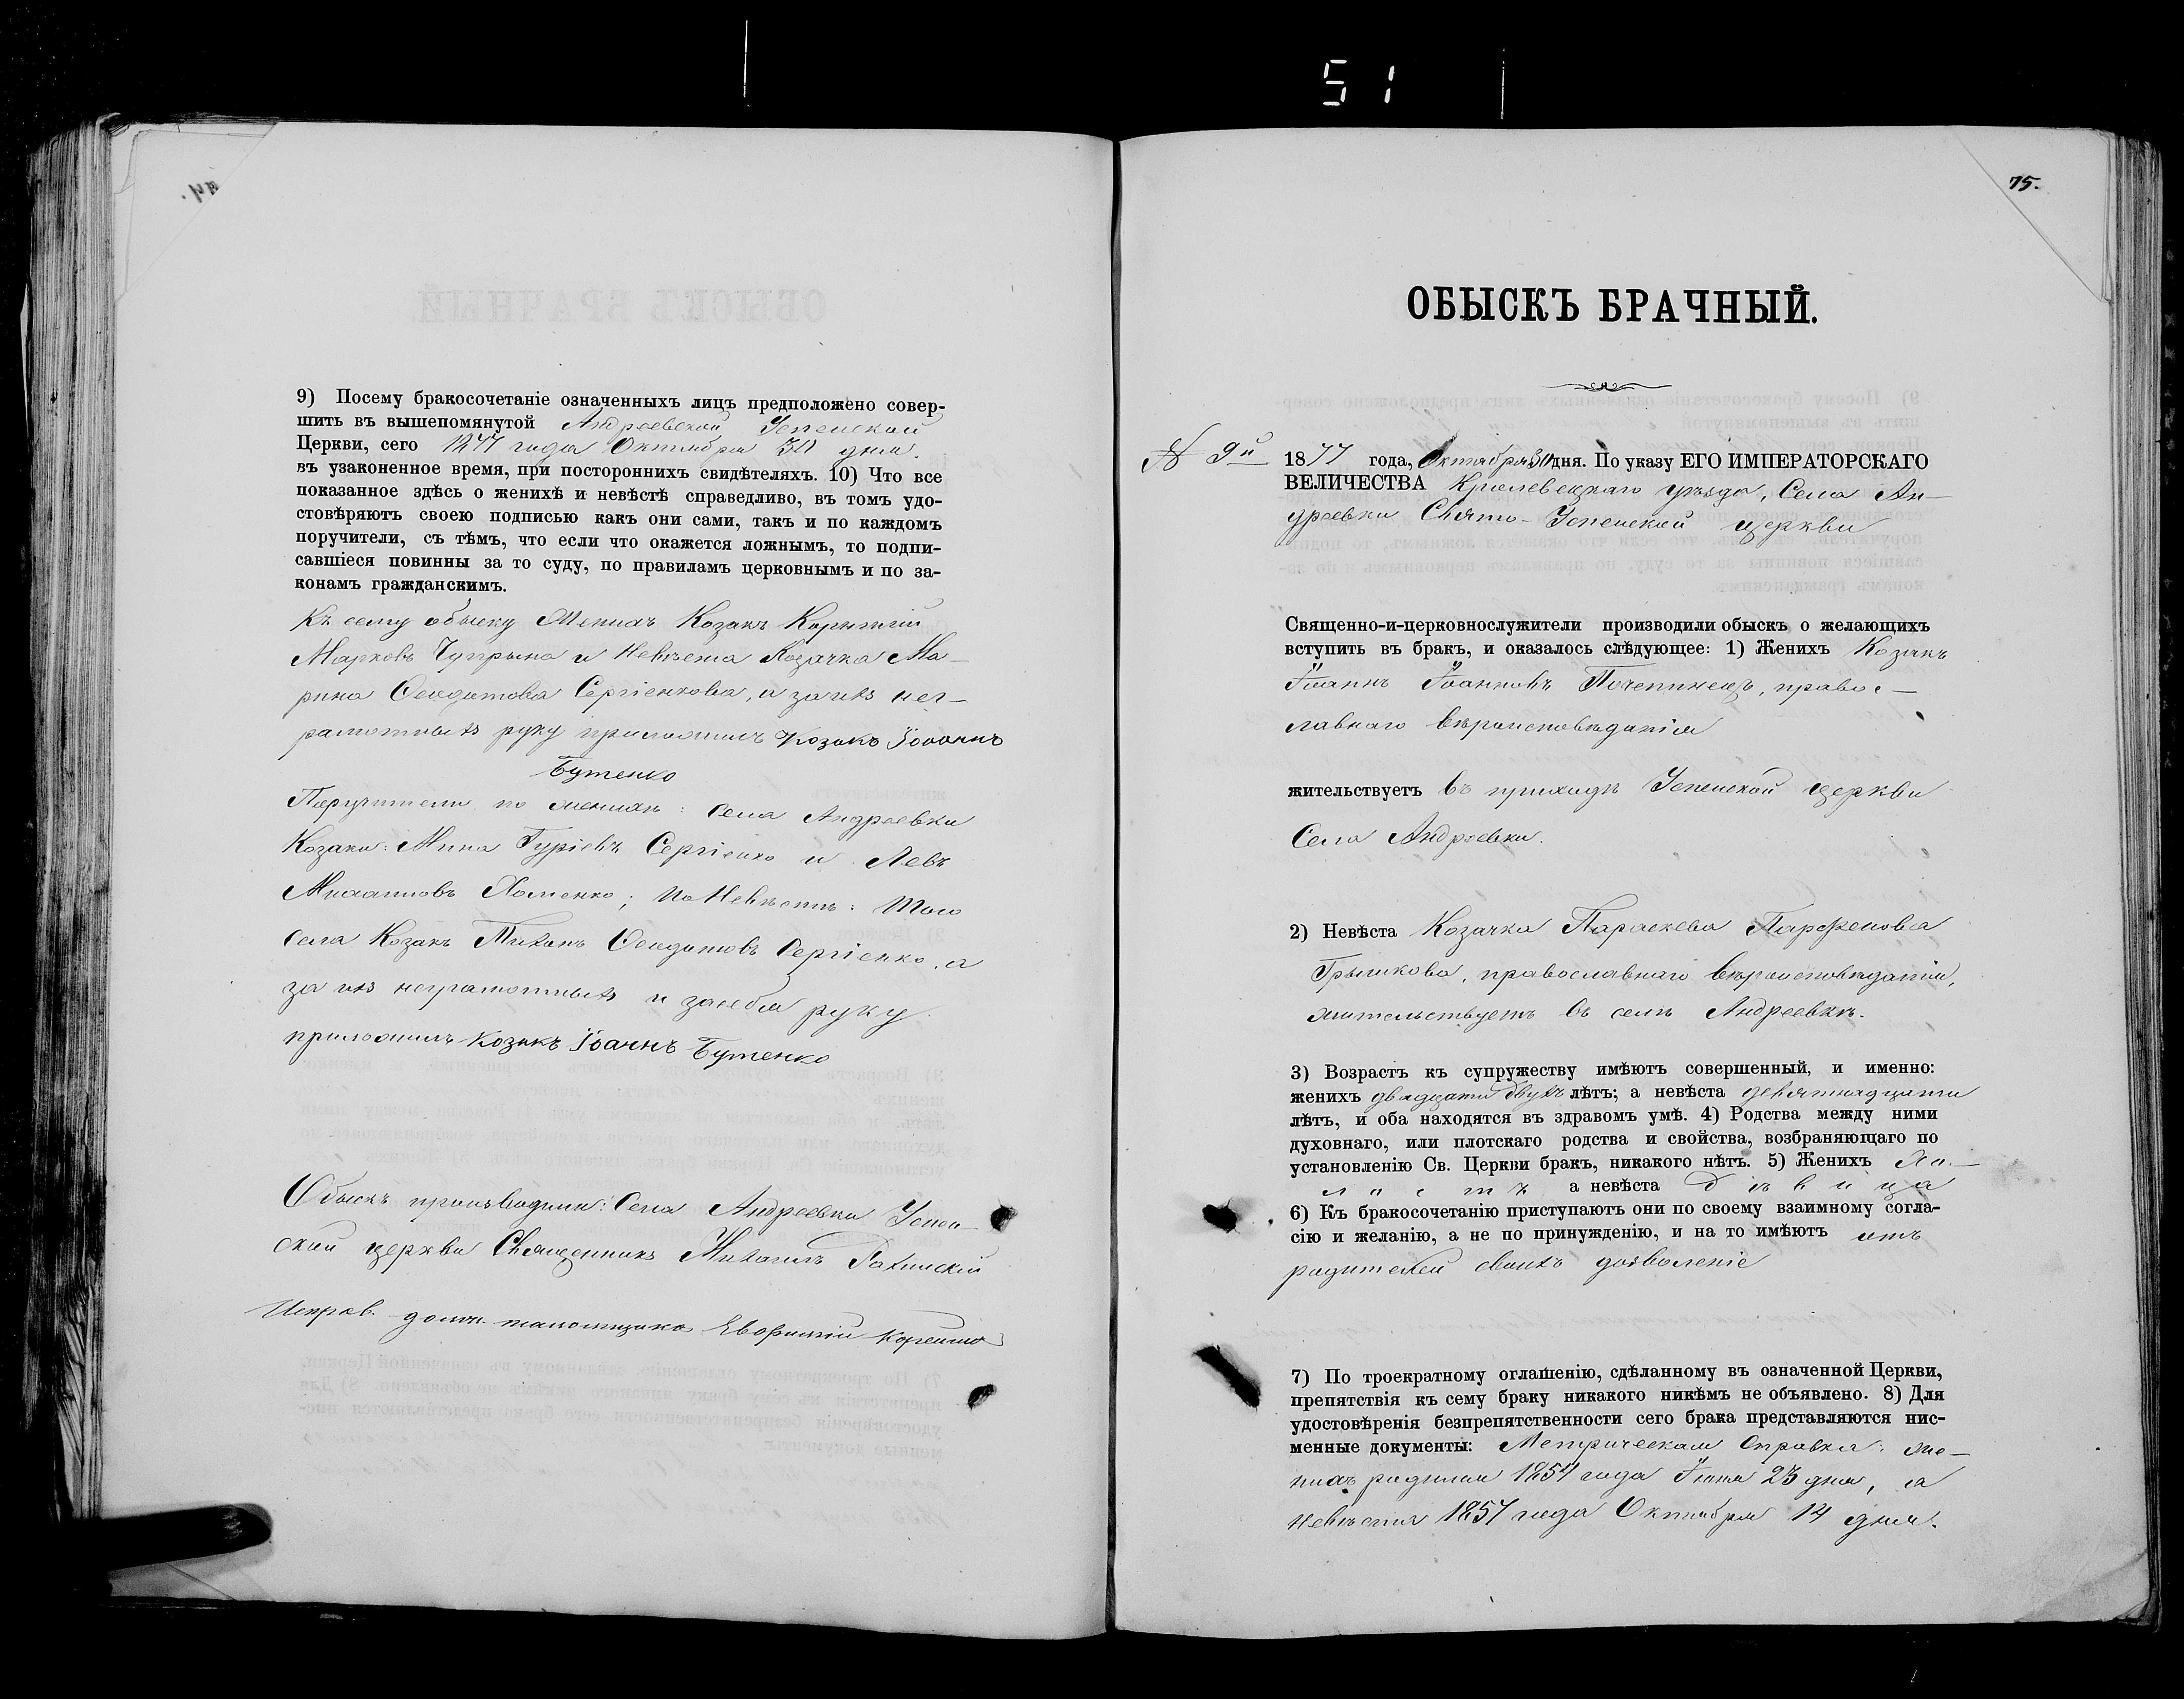 51
9) Посему бракосочетаніе означенныхъ лицъ предположено совер-
шить въ вышепомянутой Андреевской Успенской
Церкви, сего 1877 года Октября 30 дня.
въ узаконенное время, при постороннихъ свидѣтеляхъ. 10) Что все
показанное здѣсь о женихѣ и невѣстѣ справедливо, въ томъ удо-
стовѣряютъ своею подписью какъ они сами, такъ и по каждомъ
поручители, съ тѣмъ, что если что окажется ложнымъ, то подпи-
савшіеся повинны за то суду, по правиламъ церковнымъ и по за-
конамъ гражданскимъ.
Къ сему обыску Женихъ Козакъ
Марковъ Чупрына и Невѣста Козачка Ма-
рина Ѳеодотова Сергіенкова, а за ихъ нег-
рамотныхъ руку приложилъ Козакъ Іоаннъ
Бутенко
Поручители по женихѣ: Села Андреевки
Козаки: Мина Гуріевъ Сергіенко и Левъ
Хоменко; По Невѣстѣ: того
села Козакъ Тихонъ Ѳеодотовъ Сергіенко, а
за ихъ неграмотныхъ и за себя руку
приложилъ Козакъ Іоаннъ Бутенко
Обыскъ производили: Села Андреевки Успен-
ской церкви Священникъ Михаилъ
Исправ. должн. псаломщика Евфимій
75.
ОБЫСКЪ БРАЧНЫЙ.
№ 9й 1877 года, Октября 30 дня. По указу ЕГО ИМПЕРАТОРСКАГО
ВЕЛИЧЕСТВА Кролевецкаго уѣзда, Села Ан-
дреевки Свято-Успенской церкви
Священно-и-церковнослужители производили обыскъ о желающихъ
вступить въ бракъ, и оказалось слѣдующее: 1) Женихъ Козакъ
Іоаннъ Іоанновъ Почепинецъ, правос-
лавнаго вѣроисповѣданія
жительствуетъ въ приходѣ Успенской церкви
Села Андреевки.
2) Невѣста Козачка Параскева Парфенова
Грышкова, православнаго вѣроисповѣданія,
жительствуетъ въ селѣ Андреевкѣ.
3) Возрастъ къ супружеству имѣютъ совершенный, и именно:
женихъ двадцати двухъ лѣтъ; а невѣста девятнадцати
лѣтъ, и оба находятся въ здравомъ умѣ. 4) Родства между ними
духовнаго, или плотскаго родства и свойства, возбраняющаго по
установленію Св. Церкви бракъ, никакого нѣтъ. 5) Женихъ хо-
лостъ а невѣста дѣвица
6) Къ бракосочетанію приступаютъ они по своему взаимному согла-
сію и желанію, а не по принужденію, и на то имѣютъ отъ
родителей своихъ дозволеніе
7) По троекратному оглашенію, сдѣланному въ означенной Церкви,
препятствія къ сему браку никакого никѣмъ не объявлено. 8) Для
удостовѣренія безпрепятственности сего брака представляются пис-
менные документы: Метрическая справка: же-
нихъ родился 1854 года 23 дня, а
невѣста 1857 года Октября 14 дня.